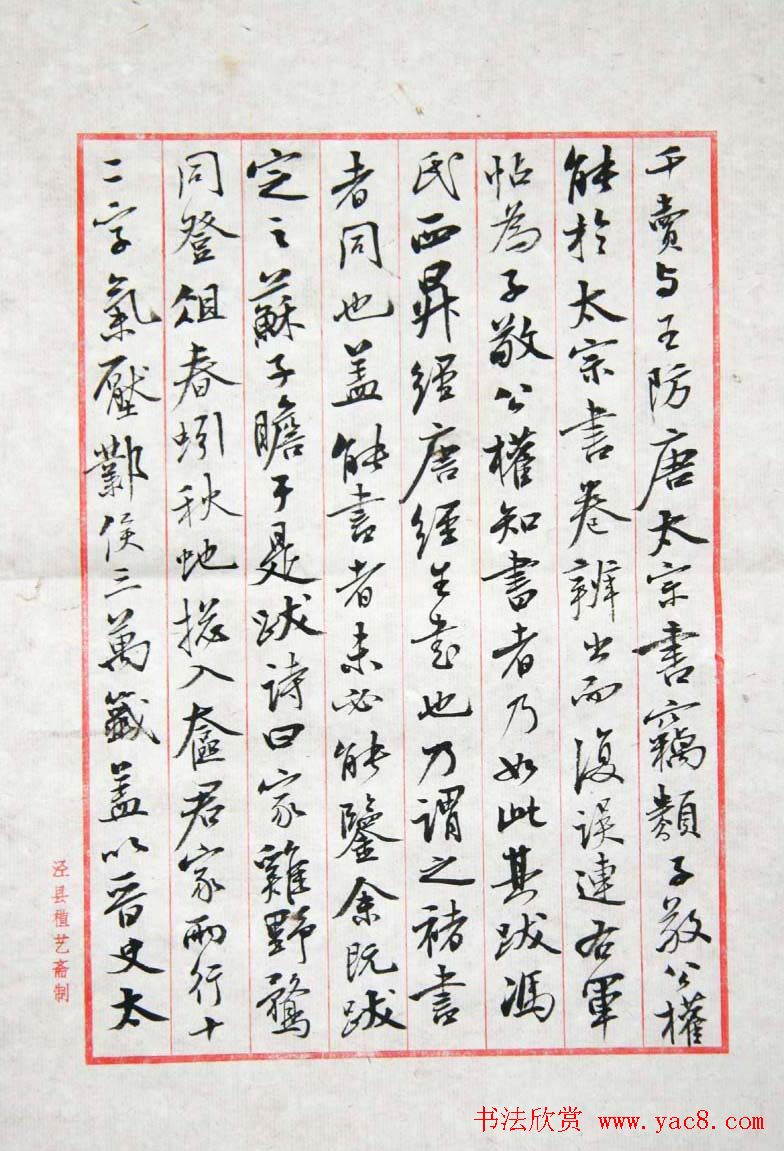 千賣与王防唐太宗書竊類子敬公權
能於太宗書卷辨出而復誤連右軍
帖為子敬公權知書者乃如此其跋馮
氏西昇經唐經生書也乃謂之褚書
者同也盖能書者未必能鑒余既跋
定之蘇子瞻于是跋詩曰家雞野鶩
同登俎春蚓秋蛇揔入奩君家兩行十
二字氣壓鄴侯三萬籤盖以晋史太
泾县植艺斋制
书法欣赏 www.yac8.com